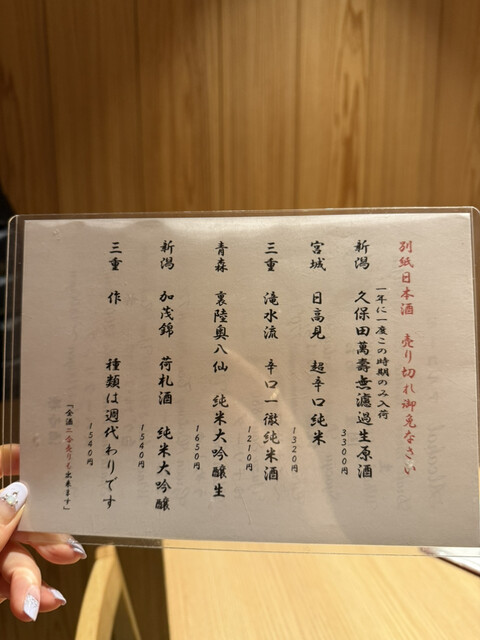 別紙日本酒 売り切れ御免なさい
一年に一度この時期のみ入荷
新潟 久保田萬壽無濾過生原酒
3300円
宮城 日高見 超辛口純米
1320円
三重 滝水流 辛口一徹純米酒
1210円
青森 裏陸奥八仙 純米大吟醸生
1650円
新潟 加茂錦 荷札酒 純米大吟醸
1540円
三重 作 種類は週代わりです
1540円
「全酒二合売りも出来ます」